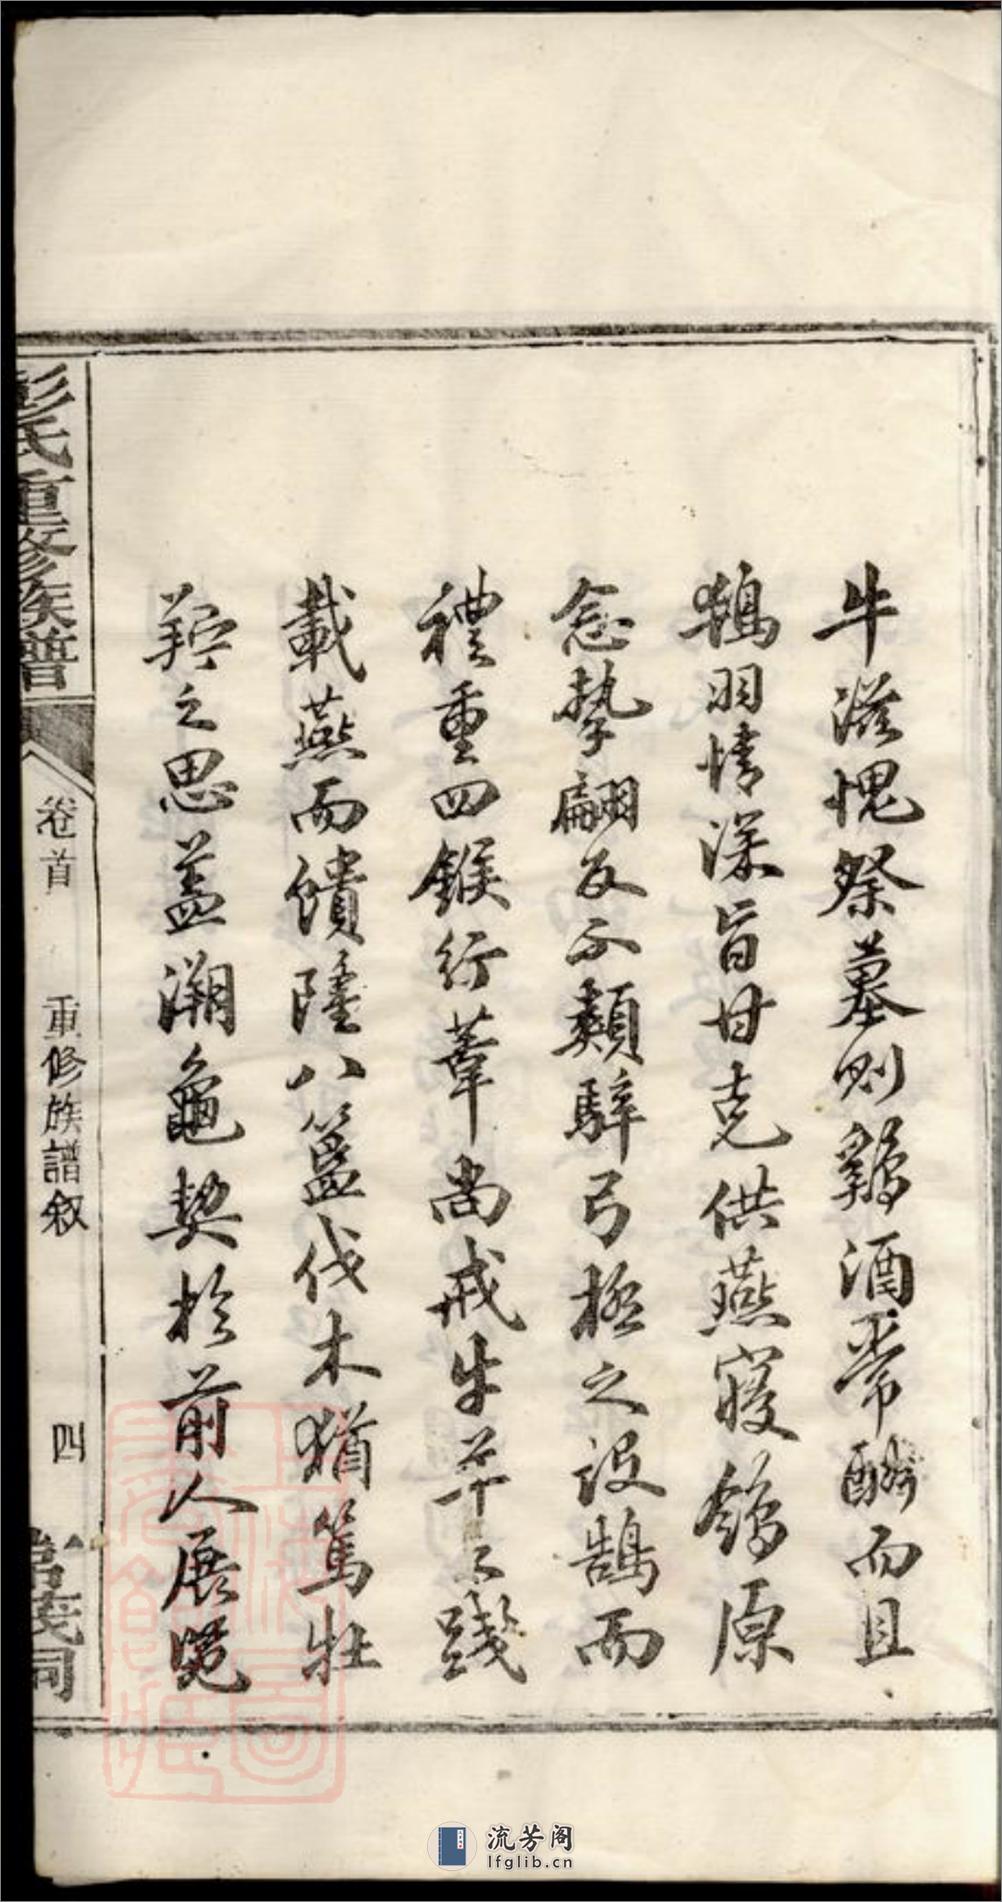 牛滋愧祭墓則鷄酒常酹而且
鴇羽情深旨甘克供燕寢鴒原
念摯翩反不類騂弓極之設鵠而
禮重四鍭行葦尚戒牛羊之踐
載燕而饋陸八簋伐木猶篤牡
羜之思蓋溯龜契於前人展覽
彭氏重修族譜
卷首
重修族譜叙
四
流芳阁
lfglib.cn